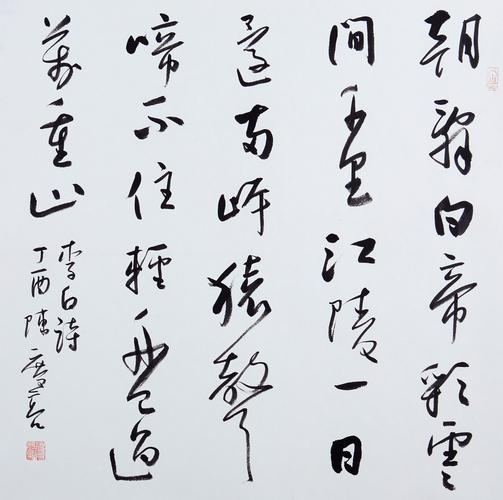 朝辭白帝彩雲
間千里江陵一日
還兩岸猿聲
啼不住輕舟已過
萬重山
李白詩
丁酉陳